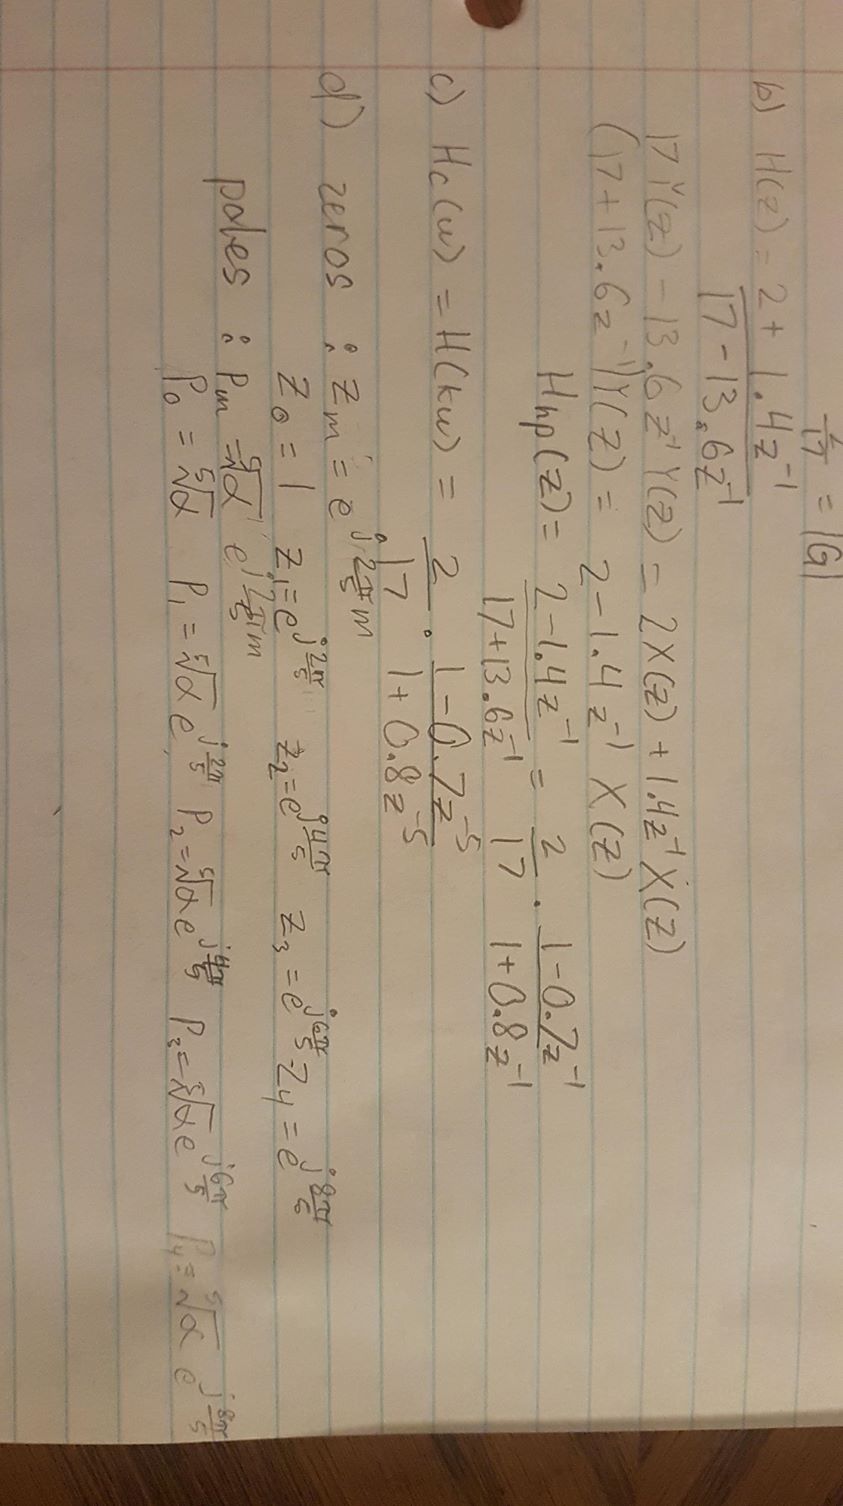 1/17 = |G|
b) H(z) = (2 + 1.4z⁻¹)/(17 - 13.6z⁻¹)
17Y(z) - 13.6z⁻¹Y(z) = 2X(z) + 1.4z⁻¹X(z)
(17 + 13.6z⁻¹)Y(z) = 2 - 1.4z⁻¹ X(z)
H_hp(z) = (2 - 1.4z⁻¹)/(17 + 13.6z⁻¹) = 2/17 · (1 - 0.7z⁻¹)/(1 + 0.8z⁻¹)
c) H_c(w) = H(kw) = 2/17 · (1 - 0.7z⁻⁵)/(1 + 0.8z⁻⁵)
d) zeros : z_m = e^(j 2π/5 m)
z₀ = 1 z₁ = e^(j 2π/5) z₂ = e^(j 4π/5) z₃ = e^(j 6π/5) z₄ = e^(j 8π/5)
poles : p_m = ⁵√α e^(j 2π/5 m)
p₀ = ⁵√α p₁ = ⁵√α e^(j 2π/5) p₂ = ⁵√α e^(j 4π/5) p₃ = ⁵√α e^(j 6π/5) p₄ = ⁵√α e^(j 8π/5)